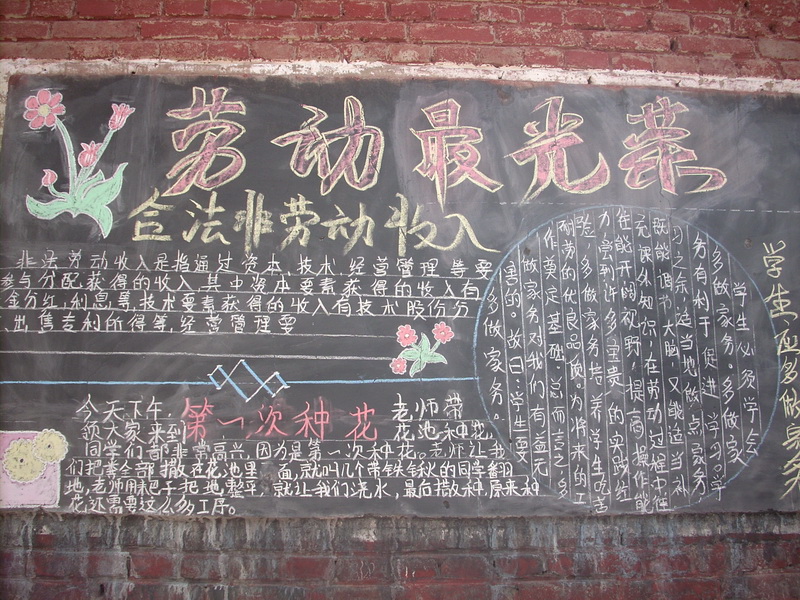 劳动最光荣
合法非劳动收入
非法劳动收入是指通过资本、技术、经营管理等要
参与分配获得的收入其中资本要素获得的收入有
含分红、利息景、技术要素获得的收入有技术股份分
、出售专利所得等、经营管理要
第一次种花
今天下午, 老师带
领大家来到 花池种花,
同学们都非常高兴,因为是第一次种花。老师让我
们把素全部撒在花池里一面,就叫几个带铁锹的同学翻
地,老师用耙子把地整平,就让我们浇水,最后撒种,原来种
花还需要这么多工序。
学生应多做家务
学生必须学会
多做家务。多做家
务有利于促进学习。学
习之余,适当地做点家务
既能调节大脑,又能适当补
充课外知识,在劳动过程中使
性能开阔视野,提高操作能
力尝到许多宝贵的实践经
验。多做家务培养学生吃苦
耐劳的优良品质。为将来的工
作奠定基础。总而言之,多
做家务对我们有益无
害的。故曰:学生要
多做家务。